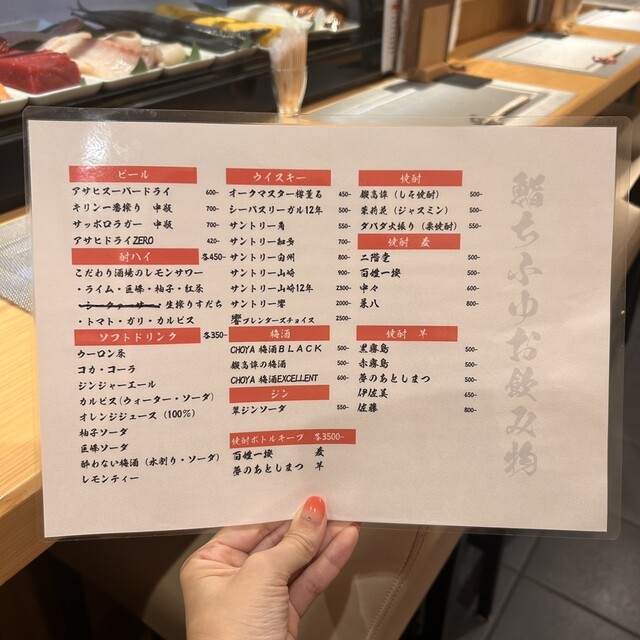 ビール
アサヒスーパードライ 600-
キリン一番搾り 中瓶 700-
サッポロラガー 中瓶 700-
アサヒドライZERO 420-
酎ハイ 各450-
こだわり酒場のレモンサワー
・ライム・巨峰・柚子・紅茶
生搾りすだち
・トマト・ガリ・カルピス
ソフトドリンク 各350-
ウーロン茶
コカ・コーラ
ジンジャーエール
カルピス(ウォーター・ソーダ)
オレンジジュース (100%)
柚子ソーダ
巨峰ソーダ
酔わない梅酒 (水割り・ソーダ)
レモンティー
ウイスキー
オークマスター樽薫る 450-
シーバスリーガル12年 500-
サントリー角 550-
サントリー知多 700-
サントリー白州 800-
サントリー山崎 900-
サントリー山崎12年 2300-
サントリー響 2000-
響ブレンダーズチョイス 2500-
梅酒
CHOYA 梅酒BLACK 500-
鍛高譚の梅酒 500-
CHOYA 梅酒EXCELLENT 600-
ジン
翠ジンソーダ 550-
焼酎ボトルキープ 各3500-
百姓一揆 麦
夢のあとしまつ 芋
焼酎
鍛高譚 (しそ焼酎) 500-
茉莉花 (ジャスミン) 500-
ダバダ火振り (栗焼酎) 550-
焼酎 麦
二階堂 500-
百姓一揆 500-
中々 600-
兼八 800-
焼酎 芋
黒霧島 500-
赤霧島 500-
夢のあとしまつ 500-
伊佐美 650-
佐藤 800-
鮨ちふゆお飲み物